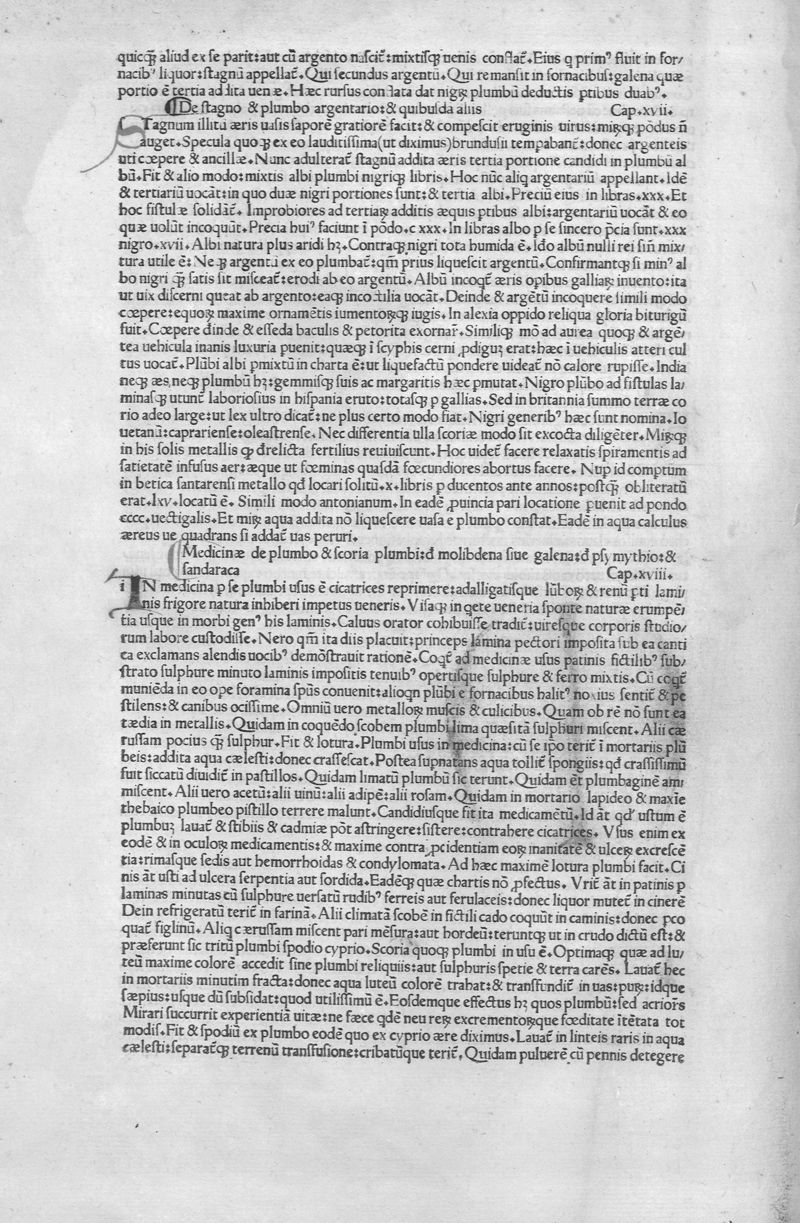 quicq̃ aliud ex se parit: aut cũ argento nascit̃: mixtisq̃ uenis conflat̃. Eius q prim⁹ fluit in for/
nacib⁹ liquor: stagnũ appellat̃. Qui secundus argentũ. Qui remansit in fornacibus: galena quæ
portio ẽ tertia addita uenæ. Hæc rursus conflata dat nigꝝ plumbũ deductis ꝑtibus duab⁹.
De stagno & plumbo argentario: & quibusda aliis Cap.xvii.
STagnum illitũ æris uasis saporẽ gratiorẽ facit: & compescit eruginis uirus: miꝝq̃ põdus ñ
auget. Specula quoq̃ ex eo lauditissima (ut diximus) brundusii tempabant̃: donec argenteis
uti cœpere & ancillæ. Nunc adulterat̃ stagnũ addita æris tertia portione candidi in plumbũ al
bũ. Fit & alio modo: mixtis albi plumbi nigriq̃ libris. Hoc nũc aliq argentariũ appellant. Idẽ
& tertiariũ uocãt: in quo duæ nigri portiones sunt: & tertia albi. Preciũ eius in libras.xxx. Et
hoc fistulæ solidãt̃. Improbiores ad tertiaꝝ additis æquis ptibus albi: argentariũ uocãt & eo
quæ uolũt incoquũt. Precia hui⁹ faciunt ĩ põdo.c xxx. In libras albo p se sincero p̃cia sunt.xxx
nigro.xvii. Albi natura plus aridi hʒ. Contraq̃ nigri tota humida ẽ. Ido albũ nulli rei sin̄ mix/
tura utile ẽ: Neq̃ argentũ ex eo plumbat̃: qm̃ prius liquescit argentũ. Confirmantq̃ si min⁹ al
bo nigri q̃ satis sit misceat̃: erodi ab eo argentũ. Albũ incoqt̃ æris opibus galliaꝝ: inuento: ita
ut uix discerni queat ab argento: eaq̃ incoctilia uocãt. Deinde & argẽtũ incoquere simili modo
cœpere: equoꝝ maxime ornamẽtis iumentoꝝq̃ iugis. In alexia oppido reliqua gloria biturigũ
fuit. Cœpere dinde & esseda baculis & petorita exornar̃. Similiq̃ mõ ad aurea quoq̃ & argẽ/
tea uehicula inanis luxuria puenit: quæq̃ ĩ scyphis cerni ꝓdiguʒ erat: hæc ĩ uehiculis atteri cul
tus uocat̃. Plũbi albi ꝑmixtũ in charta ẽ: ut liquefactũ pondere uideat̃ nõ calore rupisse. India
neq̃ æs, neq̃ plumbũ hʒ: gemmisq̃ suis ac margaritis hæc pmutat. Nigro plũbo ad fistulas la/
minasq̃ utunt̃ laboriosius in hispania eruto: totasq̃ p gallias. Sed in britannia summo terræ co
rio adeo large: ut lex ultro dicat̃: ne plus certo modo fiat. Nigri generib⁹ hæc sunt nomina. Io
uetanũ: caprariense: oleastrense. Nec differentia ulla scoriæ modo sit excocta diligẽter. Miꝝq̃
in his solis metallis qp d̃relicta fertilius reuiuiscunt. Hoc uidet̃ facere relaxatis spiramentis ad
satietatẽ infusus aer: æque ut fœminas quasdã fœcundiores abortus facere. Nup id comptum
in betica santarensi metallo qd̃ locari solitũ.x. libris p ducentos ante annos: postq̃ obliteratũ
erat. lxv. locatũ ẽ. Simili modo antonianum. In eadẽ ꝓuincia pari locatione puenit ad pondo
cccc. uectigalis. Et miꝝ aqua addita nõ liquescere uasa e plumbo constat. Eadẽ in aqua calculus
æreus ue quadrans si addat̃ uas peruri.
Medicinæ de plumbo & scoria plumbi: d̃ molibdena siue galena: d̃ psy mythio: &
sandaraca Cap.xviii.
IN medicina p se plumbi usus ẽ cicatrices reprimere: adalligatisque lũboꝝ & renũ p̃ti lami/
nis frigore natura inhiberi impetus ueneris. Visaq̃ in qete ueneria sponte naturæ erumpẽ/
tia usque in morbi gen⁹ his laminis. Caluus orator cohibuisse tradit̃: uiresque corporis studio/
rum labore custodisse. Nero qm̃ ita diis placuit: princeps lamina pectori imposita sub ea canti
ca exclamans alendis uocib⁹ demõstrauit rationẽ. Coqt̃ ad medicinæ usus patinis fictilib⁹ sub/
strato sulphure minuto laminis impositis tenuib⁹ opertisque sulphure & ferro mixtis. Cũ coqt̃
muniẽda in eo ope foramina spũs conuenit: alioqn plũbi e fornacibus halit⁹ noxius sentit̃ & pe
stilens: & canibus ocissime. Omniũ uero metalloꝝ muscis & culicibus. Quam ob rẽ nõ sunt ea
tædia in metallis. Quidam in coquẽdo scobem plumbi lima quæsitã sulphuri miscent. Alii cæ
russam pocius q̃ sulphur. Fit & lotura. Plumbi usus in medicina: cũ se ipo terit̃ ĩ mortariis plũ
beis: addita aqua cælesti: donec crassescat. Postea supnatans aqua tollit̃ spongiis: qd̃ crassissimũ
fuit siccatũ diuidit̃ in pastillos. Quidam limatũ plumbũ sic terunt. Quidam ẽt plumbaginẽ ami
miscent. Alii uero acetũ: alii uinũ: alii adipẽ: alii rosam. Quidam in mortario lapideo & maxĩe
thebaico plumbeo pistillo terrere malunt. Candidiusque fit ita medicamẽtũ. Id ãt qd⁹ ustum ẽ
plumbuʒ lauat̃ & stibiis & cadmiæ põt astringere: sistere: contrahere cicatrices. Vsus enim ex
eodẽ & in oculoꝝ medicamentis: & maxime contra ꝓcidentiam eoꝝ inanitatẽ & ulceꝝ excrescẽ
tia: rimasque sedis aut hemorrhoidas & condylomata. Ad hæc maximẽ lotura plumbi facit. Ci
nis ãt usti ad ulcera serpentia aut sordida. Eadẽq̃ quæ chartis nõ ꝓfectus. Vrit̃ ãt in patinis p
laminas minutas cũ sulphure uersatũ rudib⁹ ferreis aut ferulaceis: donec liquor mutet̃ in cinerẽ
Dein refrigeratũ terit̃ in farinã. Alii climatã scobẽ in fictili cado coquũt in caminis: donec pco
quat̃ figlinũ. Aliq cærussam miscent pari mẽsura: aut hordeũ: teruntq̃ ut in crudo dictũ est: &
præferunt sic tritũ plumbi spodio cyprio. Scoria quoq̃ plumbi in usu ẽ. Optimaq̃ quæ ad lu/
teũ maxime colorẽ accedit sine plumbi reliquiis: aut sulphuris spetie & terra carẽs. Lauat̃ hec
in mortariis minutim fracta: donec aqua luteũ colorẽ trahat: & transfundit̃ in uas: puꝝ: idque
sæpius: usque dũ subsidat: quod utilissimũ ẽ. Eosdemque effectus hʒ quos plumbũ: sed acrior̃s
Mirari succurrit experientiã uitæ: ne fæce qdẽ neu reꝝ excrementoꝝque fœditate ĩtẽtata tot
modis. Fit & spodiũ ex plumbo eodẽ quo ex cyprio ære diximus. Lauat̃ in linteis raris in aqua
cælesti: separat̃q̃ terrenũ transfusione: cribatũque terit̃. Quidam puluerẽ cũ pennis detegere